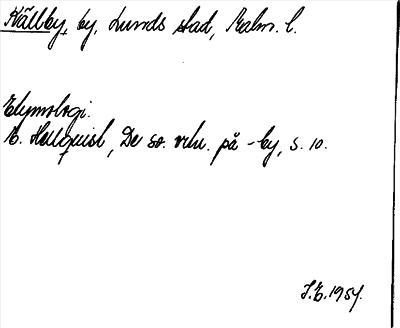 Källby, by, Lunds stad, Malm. l.
Etymologi.
E. Hellquist, De sv. ortn. på -by, s. 10.
J.E. 1954.